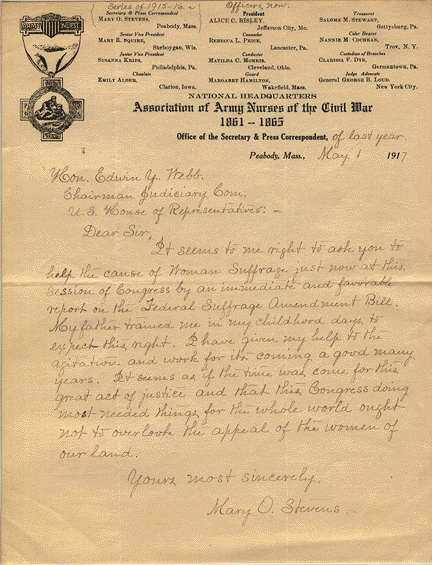 Series of 1915-16-
Officers now.
Secretary & Press Correspondent
MARY O. STEVENS,
Peabody, Mass.
Senior Vice President
MARY E. SQUIRE,
Sheboygan, Wis.
Junior Vice President
SUSANNA KRIPS,
Philadelphia, Pa.
Chaplain
EMILY ALDER,
Clarion, Iowa.
President
ALICE C. RISLEY,
Jefferson City, Mo.
Counselor
REBECCA L. PRICE,
Lancaster, Pa.
Conductor
MATILDA C. MORRIS,
Cleveland, Ohio.
Guard
MARGARET HAMILTON,
Wakefield, Mass.
Treasurer
SALOME M. STEWART,
Gettysburg, Pa.
Color Bearer
NANNIE M. COCHRAN,
Troy, N. Y.
Custodian of Branches
CLARISSA F. DYE,
Germantown, Pa.
Judge Advocate
GENERAL GEORGE B. LOUD.
New York City.
ARMY NURSE
NATIONAL HEADQUARTERS
Association of Army Nurses of the Civil War
1861 -- 1865
Office of the Secretary & Press Correspondent, of last year.
Peabody, Mass., May 1 1917
Hon. Edwin Y. Webb.
Chairman Judiciary Com.
U. S. House of Representatives: -
Dear Sir,
It seems to me right to ask you to
help the cause of Woman Suffrage just now at this
Session of Congress by an immediate and favorable
report on the Federal Suffrage Amendment Bill.
My father trained me in my childhood days, to
expect this right. I have given my help to the
agitation and work for its coming a good many
years. It seems as if the time was come for this
great act of justice and that this Congress doing
most needed things for the whole world ought
not to overlook the appeal of the women of
our land.
Yours most sincerely,
Mary O. Stevens. -